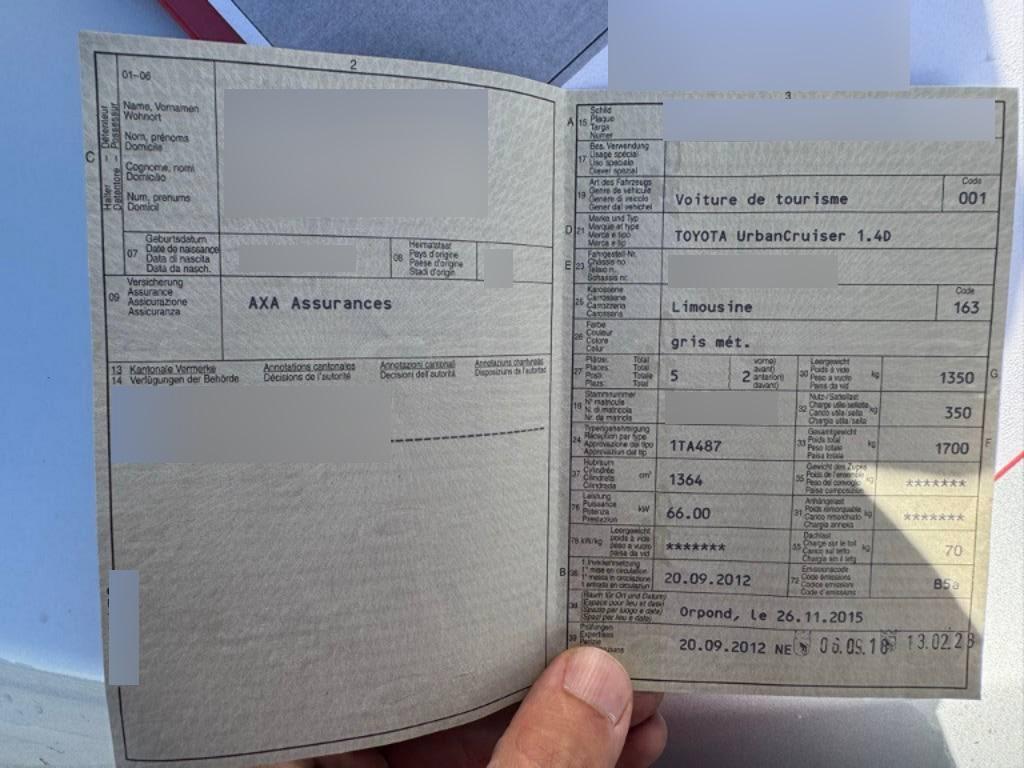 2
01-06
Halter – Détenteur
Detentore – Possessur
C
Name, Vornamen
Wohnort
Nom, prénoms
Domicile
Cognome, nomi
Domicilio
Num, prenums
Domicil
07
Geburtsdatum
Date de naissance
Data di nascita
Data da nasch.
08
Heimatstaat
Pays d'origine
Paese d'origine
Stadi d'origin
09
Versicherung
Assurance
Assicurazione
Assicuranza
AXA Assurances
13 Kantonale Vermerke Annotations cantonales Annotazioni cantonali Annotaziuns chantunalas
14 Verfügungen der Behörde Décisions de l'autorité Decisioni dell'autorità Disposiziuns da l'autoritad
3
A 15
Schild
Plaque
Targa
Numer
17
Bes. Verwendung
Usage spécial
Uso speciale
Diever spezial
19
Art des Fahrzeugs
Genre de véhicule
Genere di veicolo
Gener dal vehichel
Voiture de tourisme
Code
001
D 21
Marke und Typ
Marque et type
Marca e tipo
Marca e tip
TOYOTA UrbanCruiser 1.4D
E 23
Fahrgestell-Nr.
Châssis no
Telaio n.
Schassis nr.
25
Karosserie
Carrosserie
Carrozzeria
Carossaria
Limousine
Code
163
26
Farbe
Couleur
Colore
Colur
gris mét.
27
Plätze: Total
Places: Total
Posti: Totale
Plazs: Total
5
2
vorne)
avant)
anteriori)
davant)
30
Leergewicht
Poids à vide
Peso a vuoto
Paisa da vid
kg
1350
G
18
Stammnummer
N° matricule
N. di matricola
Nr. da matricla
32
Nutz-/Sattellast
Charge utile/sellette
Carico utile/sella
Chargia utila/sella
kg
350
24
Typengenehmigung
Réception par type
Approvazione del tipo
Approvaziun dal tip
1TA487
33
Gesamtgewicht
Poids total
Peso totale
Paisa totala
kg
1700
F
37
Hubraum
Cylindrée
Cilindrata
Cilindrada
cm³
1364
35
Gewicht des Zuges
Poids de l'ensemble
Peso del convoglio
Paisa cumposiziun
kg
*******
76
Leistung
Puissance
Potenza
Prestaziun
kW
66.00
31
Anhängelast
Poids remorquable
Carico rimorchiato
Chargia annexa
kg
*******
78 kW/kg
Leergewicht
poids à vide
peso a vuoto
paisa da vid
*******
55
Dachlast
Charge sur le toit
Carico sul tetto
Chargia sin il tetg
kg
70
B 36
1. Inverkehrsetzung
1re mise en circulation
1a messa in circolazione
1. entrada en circulaziun
20.09.2012
72
Emissionscode
Code émissions
Codice emissioni
Code d'emissiuns
B5a
38
(Raum für Ort und Datum)
(Espace pour lieu et date)
(Spazio per luogo e data)
(Spazi per lieu e data)
Orpond, le 26.11.2015
39
Prüfungen
Expertises
20.09.2012 NE 06.09.18 13.02.23